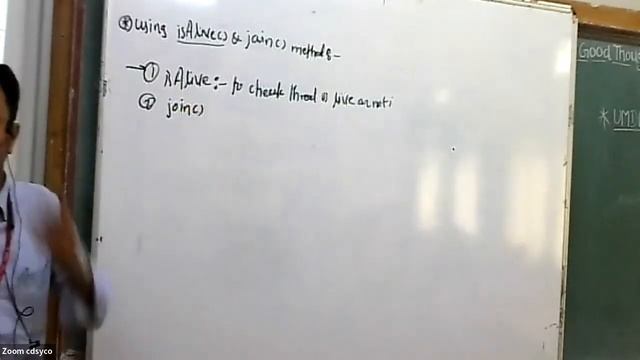 * using isAlive() & join() methods -
→ ① isAlive :- to check thread is live or not
② join()
Good Thou
* UMI
Zoom cdsyco